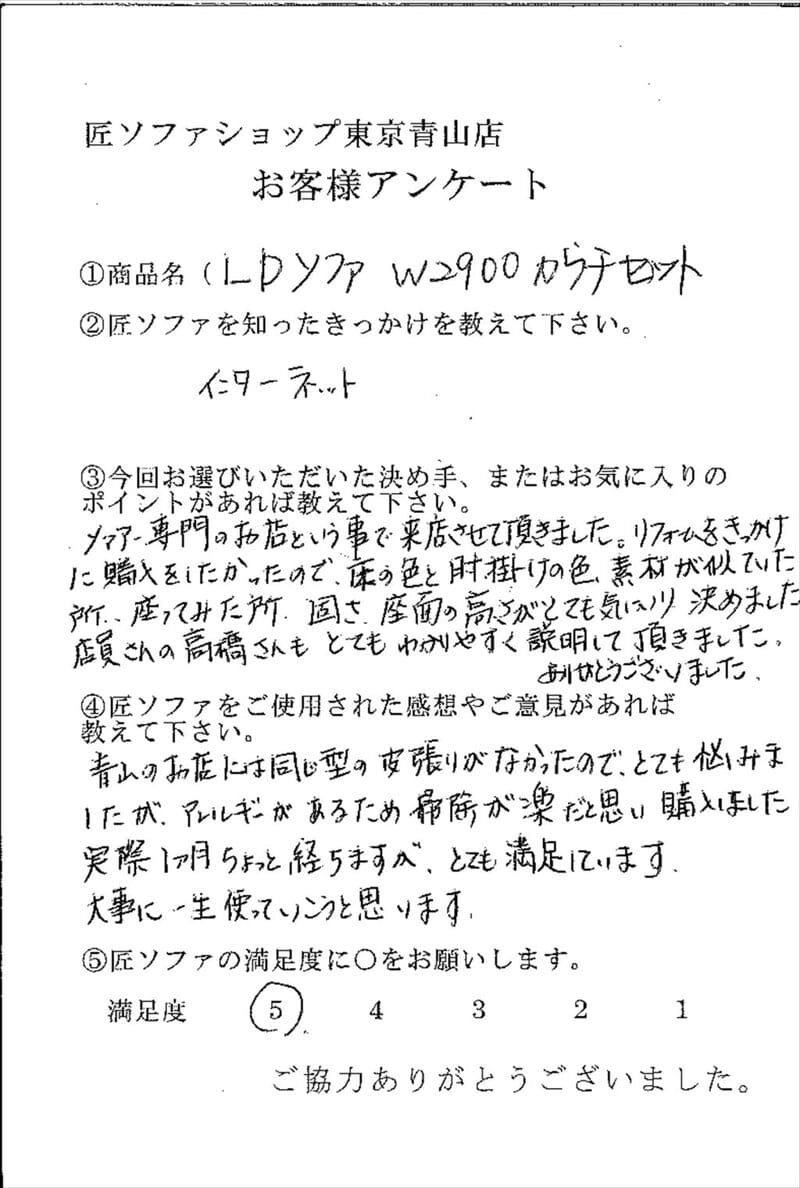 匠ソファショップ東京青山店
お客様アンケート
①商品名(LDソファ W2900カウチセット
②匠ソファを知ったきっかけを教えて下さい。
インターネット
③今回お選びいただいた決め手、またはお気に入りの
ポイントがあれば教えて下さい。
ソファー専門のお店という事で来店させて頂きました。リフォームをきっかけ
に購入をしたかったので、床の色と肘掛けの色、素材が似ていた
所、座ってみた所、固さ、座面の高さがとても気に入り決めました
店員さんの高橋さんもとてもわかりやすく説明して頂きました。
ありがとうございました。
④匠ソファをご使用された感想やご意見があれば
教えて下さい。
青山のお店には同じ型の皮張りがなかったので、とても悩みま
したが、アレルギーがあるため掃除が楽だと思い購入しました
実際1ヶ月ちょっと経ちますが、とても満足しています。
大事に一生使っていこうと思います。
⑤匠ソファの満足度に〇をお願いします。
満足度 5 4 3 2 1
ご協力ありがとうございました。